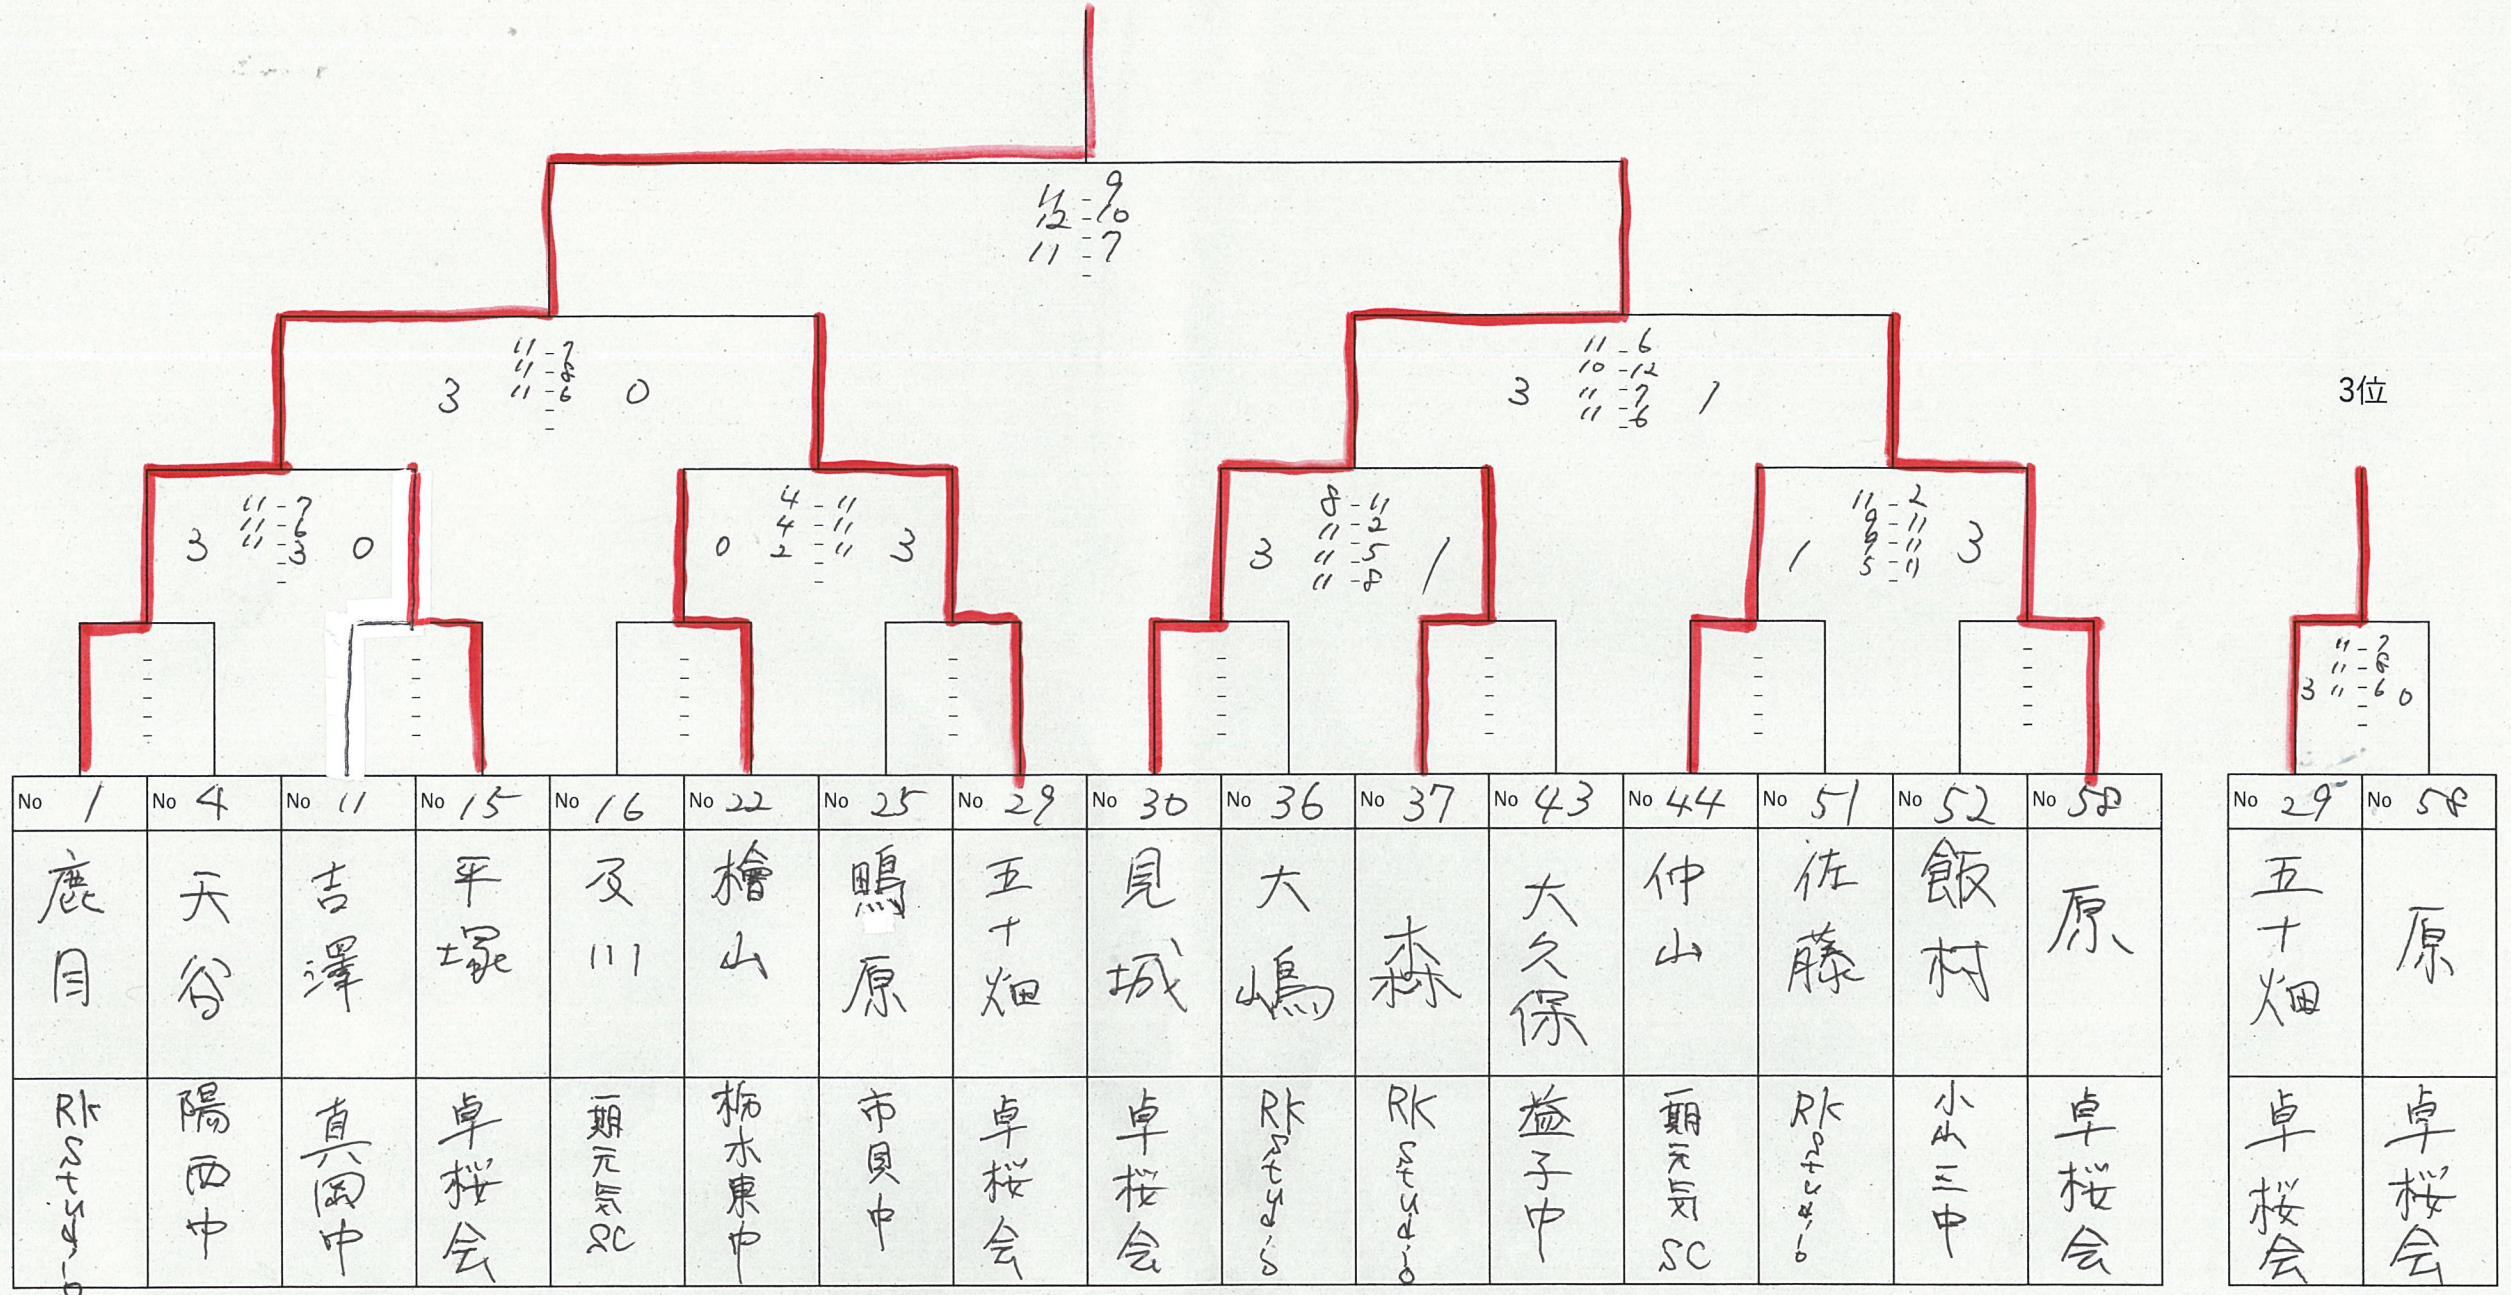 11 - 9
12 - 10
11 - 7
3 0
11 - 7
11 - 8
11 - 6
3 1
11 - 6
10 - 12
11 - 7
11 - 6
3位
3 0
11 - 7
11 - 6
11 - 3
0 3
4 - 11
4 - 11
2 - 11
3 1
8 - 11
11 - 2
11 - 5
11 - 8
1 3
11 - 2
9 - 11
9 - 11
5 - 11
3 0
11 - 7
11 - 8
11 - 6
No 1 No 4 No 11 No 15 No 16 No 22 No 25 No 29 No 30 No 36 No 37 No 43 No 44 No 51 No 52 No 58 No 29 No 58
鹿目 天谷 吉澤 平塚 及川 檜山 鴨原 五十畑 見城 大嶋 森 大久保 仲山 佐藤 飯村 原 五十畑 原
RKstudio 陽西中 真岡中 卓桜会 元気SC 栃木東中 市貝中 卓桜会 卓桜会 RKstudio RKstudio 益子中 元気SC RKstudio 小山三中 卓桜会 卓桜会 卓桜会